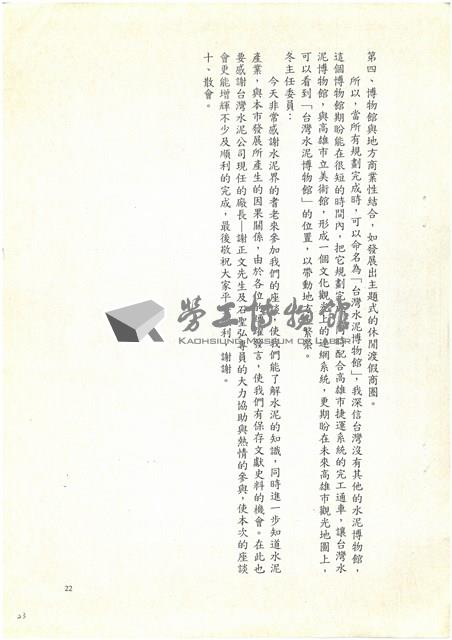 第四、博物館與地方商業性結合，如發展出主題式的休閒渡假商圈。
所以，當所有規劃完成時，可以命名為「台灣水泥博物館」，我深信台灣沒有其他的水泥博物館，
這個博物館期盼能在很短的時間內，把它規劃完 配合高雄市捷運系統的完工通車，讓台灣水
泥博物館，與高雄市立美術館，形成一個文化觀 上的連網系統，更期盼在未來高雄市觀光地圖上，
可以看到「台灣水泥博物館」的位置，以帶動地方繁榮。
冬主任委員：
今天非常感謝水泥界的耆老來參加我們的座談，使我們能了解水泥的知識，同時進一步知道水泥
產業，與本市發展所產生的因果關係，由於各位的踴躍發言，使我們有保存文獻史料的機會。在此也
要感謝台灣水泥公司現任的廠長—謝正文先生及石聖弘專員的大力協助與熱情的參與，使本次的座談
會更能增輝不少及順利的完成，最後敬祝大家平 利 謝謝。
十、散會。
勞工博物館
KAOHSIUNG MUSEUM OF LABOR
22
23